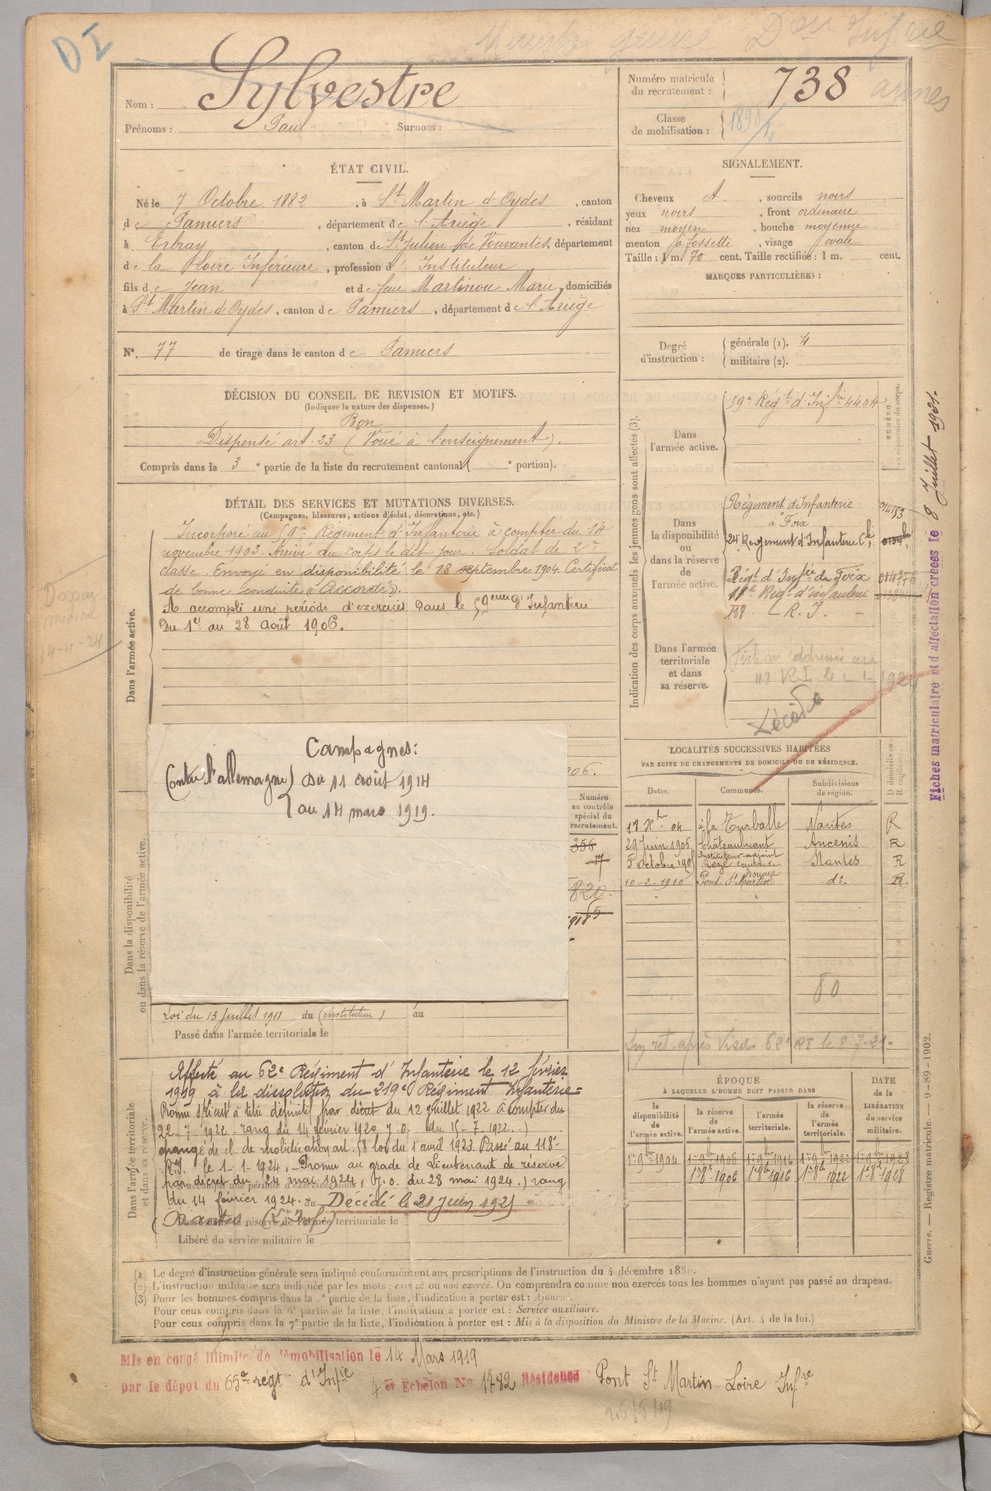 DI
Nom : Sylvestre
Prénoms : Paul Surnom :
Numéro matricule du recrutement : 738
Classe de mobilisation : 1898/2
ÉTAT CIVIL.
Né le 7 Octobre 1882, à St Martin d'Oydes, canton
de Pamiers, département de l'Ariège, résidant
à Erbray, canton de St Julien de Vouvantes, département
de la Loire Inférieure, profession d'Instituteur
fils de Jean et de feue Martinou Marie, domiciliés
à St Martin d'Oydes, canton de Pamiers, département de l'Ariège
N° 77 de tirage dans le canton de Pamiers
SIGNALEMENT.
Cheveux , sourcils noirs
yeux noirs, front ordinaire
nez moyen, bouche moyenne
menton à fossette, visage ovale
Taille : 1 m. 70 cent. Taille rectifiée : 1 m. cent.
MARQUES PARTICULIÈRES :
Degré d'instruction : générale (1). 4
militaire (2).
DÉCISION DU CONSEIL DE REVISION ET MOTIFS.
(Indiquer la nature des dispenses.)
Bon
Dispensé art. 23 (Voué à l'enseignement).
Compris dans la 3e partie de la liste du recrutement cantonal ( e portion).
DÉTAIL DES SERVICES ET MUTATIONS DIVERSES.
(Campagnes, blessures, actions d'éclat, décorations, etc.)
Dans l'armée active.
Incorporé au 59e Régiment d'Infanterie à compter du 14
novembre 1903. Arrivé au corps le dit jour. Soldat de 2e
classe. Envoyé en disponibilité le 18 septembre 1904. Certificat
de bonne conduite "Accordé".
A accompli une période d'exercices dans le 59eme d'Infanterie
du 1er au 28 août 1906.
Dossier
médical
4-4-24
Campagnes :
(contre l'allemagne) du 11 août 1914
au 14 mars 1919.
Indication des corps auxquels les jeunes gens sont affectés (3).
Dans l'armée active.
59e Régt d'Infie 4404
NUMÉRO
Dans la disponibilité ou dans la réserve de l'armée active.
Régiment d'Infanterie
à Foix
Régt d'Infie de Foix
118 R. I.
Dans l'armée territoriale et dans sa réserve.
118 R I le 1-1-1924
Décédé
Fiches matriculaire et d'affectation créées le 8 Juillet 1921.
LOCALITÉS SUCCESSIVES HABITÉES
PAR SUITE DE CHANGEMENTS DE DOMICILE OU DE RÉSIDENCE.
Dates. Communes. Subdivisions de région. D domicile ou R résidence.
18 Xbre 04 à la Turballe Nantes R
29 Juin 1905 Châteaubriant Ancenis R
Nantes R
10-2-1910 Pont St Martin do R
80
Numéro au contrôle spécial du recrutement.
356
820
Dans la disponibilité ou dans la réserve de l'armée active.
Loi du 13 juillet 1911 du (instituteur) au
Passé dans l'armée territoriale le
Dans l'armée territoriale et dans sa réserve.
Affecté au 62e Régiment d'Infanterie le 12 février
1919 à la dissolution du 219e Régiment Infanterie
Promu S/Lieut à titre définitif par décret du 12 juillet 1922 à compter du
22-7-1922. rang du 14 février 1920. J.O. du 15-7-1922.
change de cl. de mobilisation art. 58 loi du 1 avril 1923. Passé au 118e
R.I. le 1-1-1924. Promu au grade de Lieutenant de réserve
par décret du 24 mai 1924 (J.O. du 28 mai 1924.) rang
du 14 février 1924. Décédé le 21 juin 1925 à
Nantes (Lre Infre)
Libéré du service militaire le
ÉPOQUE
À LAQUELLE L'HOMME DOIT PASSER DANS
la disponibilité de l'armée active. la réserve de l'armée active. l'armée territoriale. la réserve de l'armée territoriale. DATE de la LIBÉRATION du service militaire.
1er 9bre 1904 1er 9bre 1906 1er 9bre 1916 1er 9bre 1922 1er 9bre 1928
1er 8bre 1906 1er 8bre 1916 1er 8bre 1922 1er 8bre 1928
(1) Le degré d'instruction générale sera indiqué conformément aux prescriptions de l'instruction du 4 décembre 1889.
(2) L'instruction militaire sera indiquée par les mots : exercé ou non exercé. On comprendra comme non exercés tous les hommes n'ayant pas passé au drapeau.
(3) Pour les hommes compris dans la partie de la liste, l'indication à porter est : Ajourné.
Pour ceux compris dans la 6e partie de la liste, l'indication à porter est : Service auxiliaire.
Pour ceux compris dans la 7e partie de la liste, l'indication à porter est : Mis à la disposition du Ministre de la Marine. (Art. 4 de la loi.)
Guerre. — Registre matricule. — 9-89-1902.
Mis en congé illimité de démobilisation le 14 Mars 1919
par le dépot du 65e régt d'Infie 4e Echelon No 1782 Résidence Pont St Martin Loire Infre